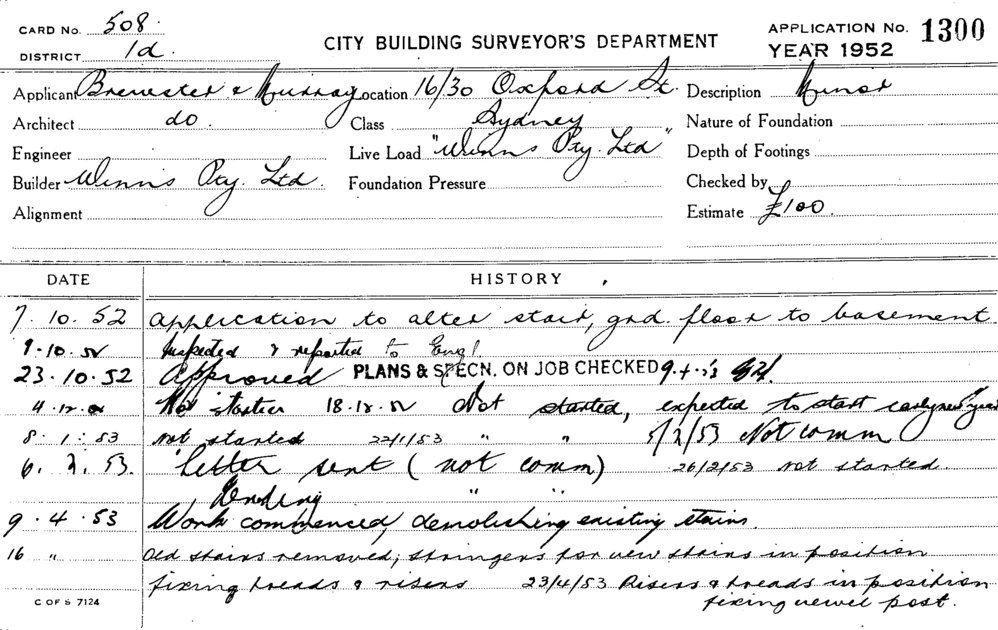 CARD No. 508.
DISTRICT 1d.
CITY BUILDING SURVEYOR'S DEPARTMENT
APPLICATION No. 1300
YEAR 1952
Applicant Brewster & Murray Location 16/30 Oxford St. Description Minor
Architect do. Class Sydney Nature of Foundation
Engineer Live Load "Winns Pty. Ltd" Depth of Footings
Builder Winns Pty. Ltd. Foundation Pressure Checked by
Alignment Estimate £100.
DATE HISTORY
7.10.52 Application to alter stair, grd. floor to basement.
9.10.52 Inspected & reported to Eng.
23.10.52 Approved PLANS & SPECN. ON JOB CHECKED 9.4.53
4.12.52 Not started 18.12.52 Not started, expected to start early new year
8.1.53 not started 22/1/53 " " 5/2/53 Not comm
6.2.53. Letter sent (not comm) 26/2/53 not started.
Pending " "
9.4.53 Work commenced, demolishing existing stairs.
16 " Old stairs removed; stringers for new stairs in position
fixing treads & risers 23/4/53 Risers & treads in position
fixing newel post.
C OF S 7124